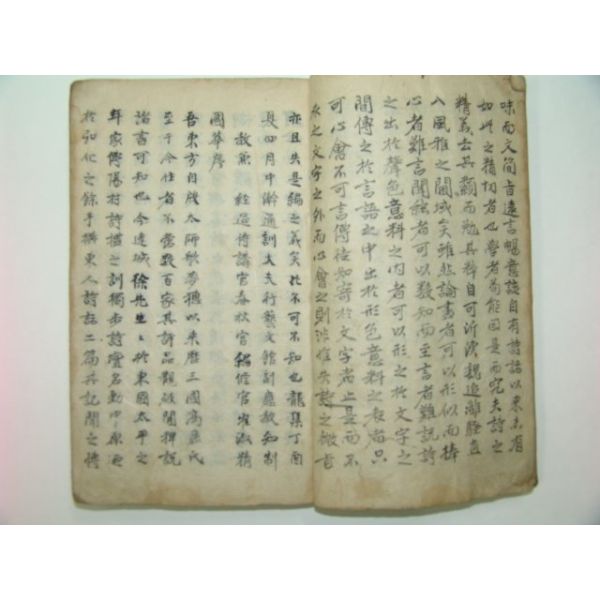 味而文簡旨遠言暢意該自有詩話以來未有
如此之精切者也學者苟能因是而究夫詩之
精義去其艱而勉其粹自可泝漢魏追離騷直
入風雅之閫域矣雖然論畫者可以形似而捧
心者難言聞絃者可以數知而至言者難說詩
之出於聲色意料之內者可以形之於文字之
間傳之於言語之中出於形色意料之表者只
可心會不可言傳徒知寄於文字尚止是而不
求之文字之外而心會之則非惟失詩之微旨
亦且失是編之義矣於不可不知也龍集丁酉
夏四月中澣通訓大夫行藝文館副應敎知制
敎兼 經筵侍講官春秋官 編修官崔淑精
國華序
吾東方自殷太師歌麥穗以來曆三國高麗氏
至于今作者不啻數百家其詩品散破閑稗說
諸書可知也今達城徐先生生於東國太平之
年家傳陽村詩禮之訓獨步詩壇名動中原
於弘化之餘手撰東人詩話二篇其記聞之博